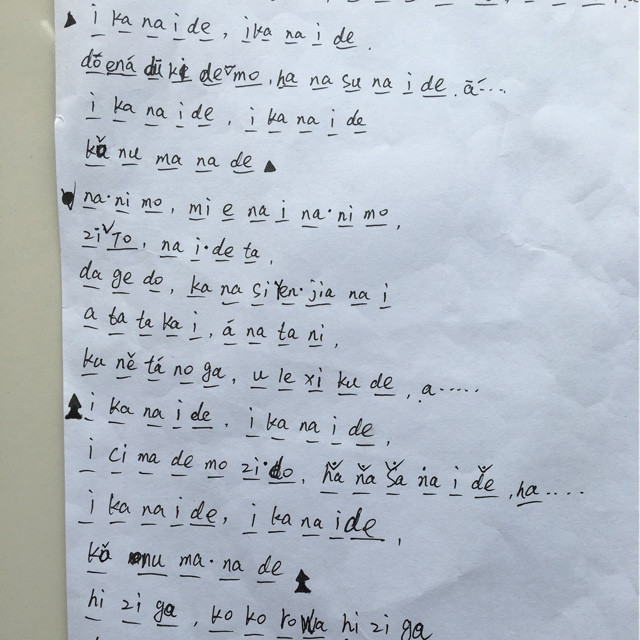 i ka na i de, ika na i de.
dŏ ená dū ki deˇmo, ha na su na i de. ā́‑‑‑
i ka na i de, i ka na i de
kă nu ma na de
na·ni mo, mi e na i na·ni mo,
ziˇTo, na i·de ta,
da ge do, ka na si en·jia na i
a ta ta ka i, á na ta ni,
ku ně tá no ga, u le xi ku de, a·····
i ka na i de, i ka na i de,
i ci ma de mo zi·do, hǎ ňa ša na i ďe, ha....
i ka na i de, i ka na ide,
kǎ nu ma·na de
hi zi ga, ko ko ro wa hi zi ga